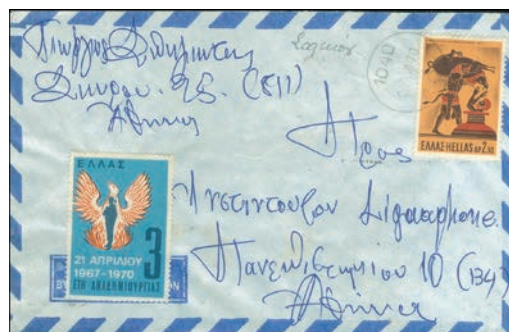 Γιώργος
Σκύρου 25 (811)
Αθήνα
1040
ΕΛΛΑΣ-HELLAS ΔΡ 2,50
Προς
Ινστιτούτον Linguaphone
Πανεπιστημίου 10 (134)
Αθήνα
ΕΛΛΑΣ
21 ΑΠΡΙΛΙΟΥ
1967-1970
3
ΕΤΗ ΑΝΑΔΗΜΙΟΥΡΓΙΑΣ